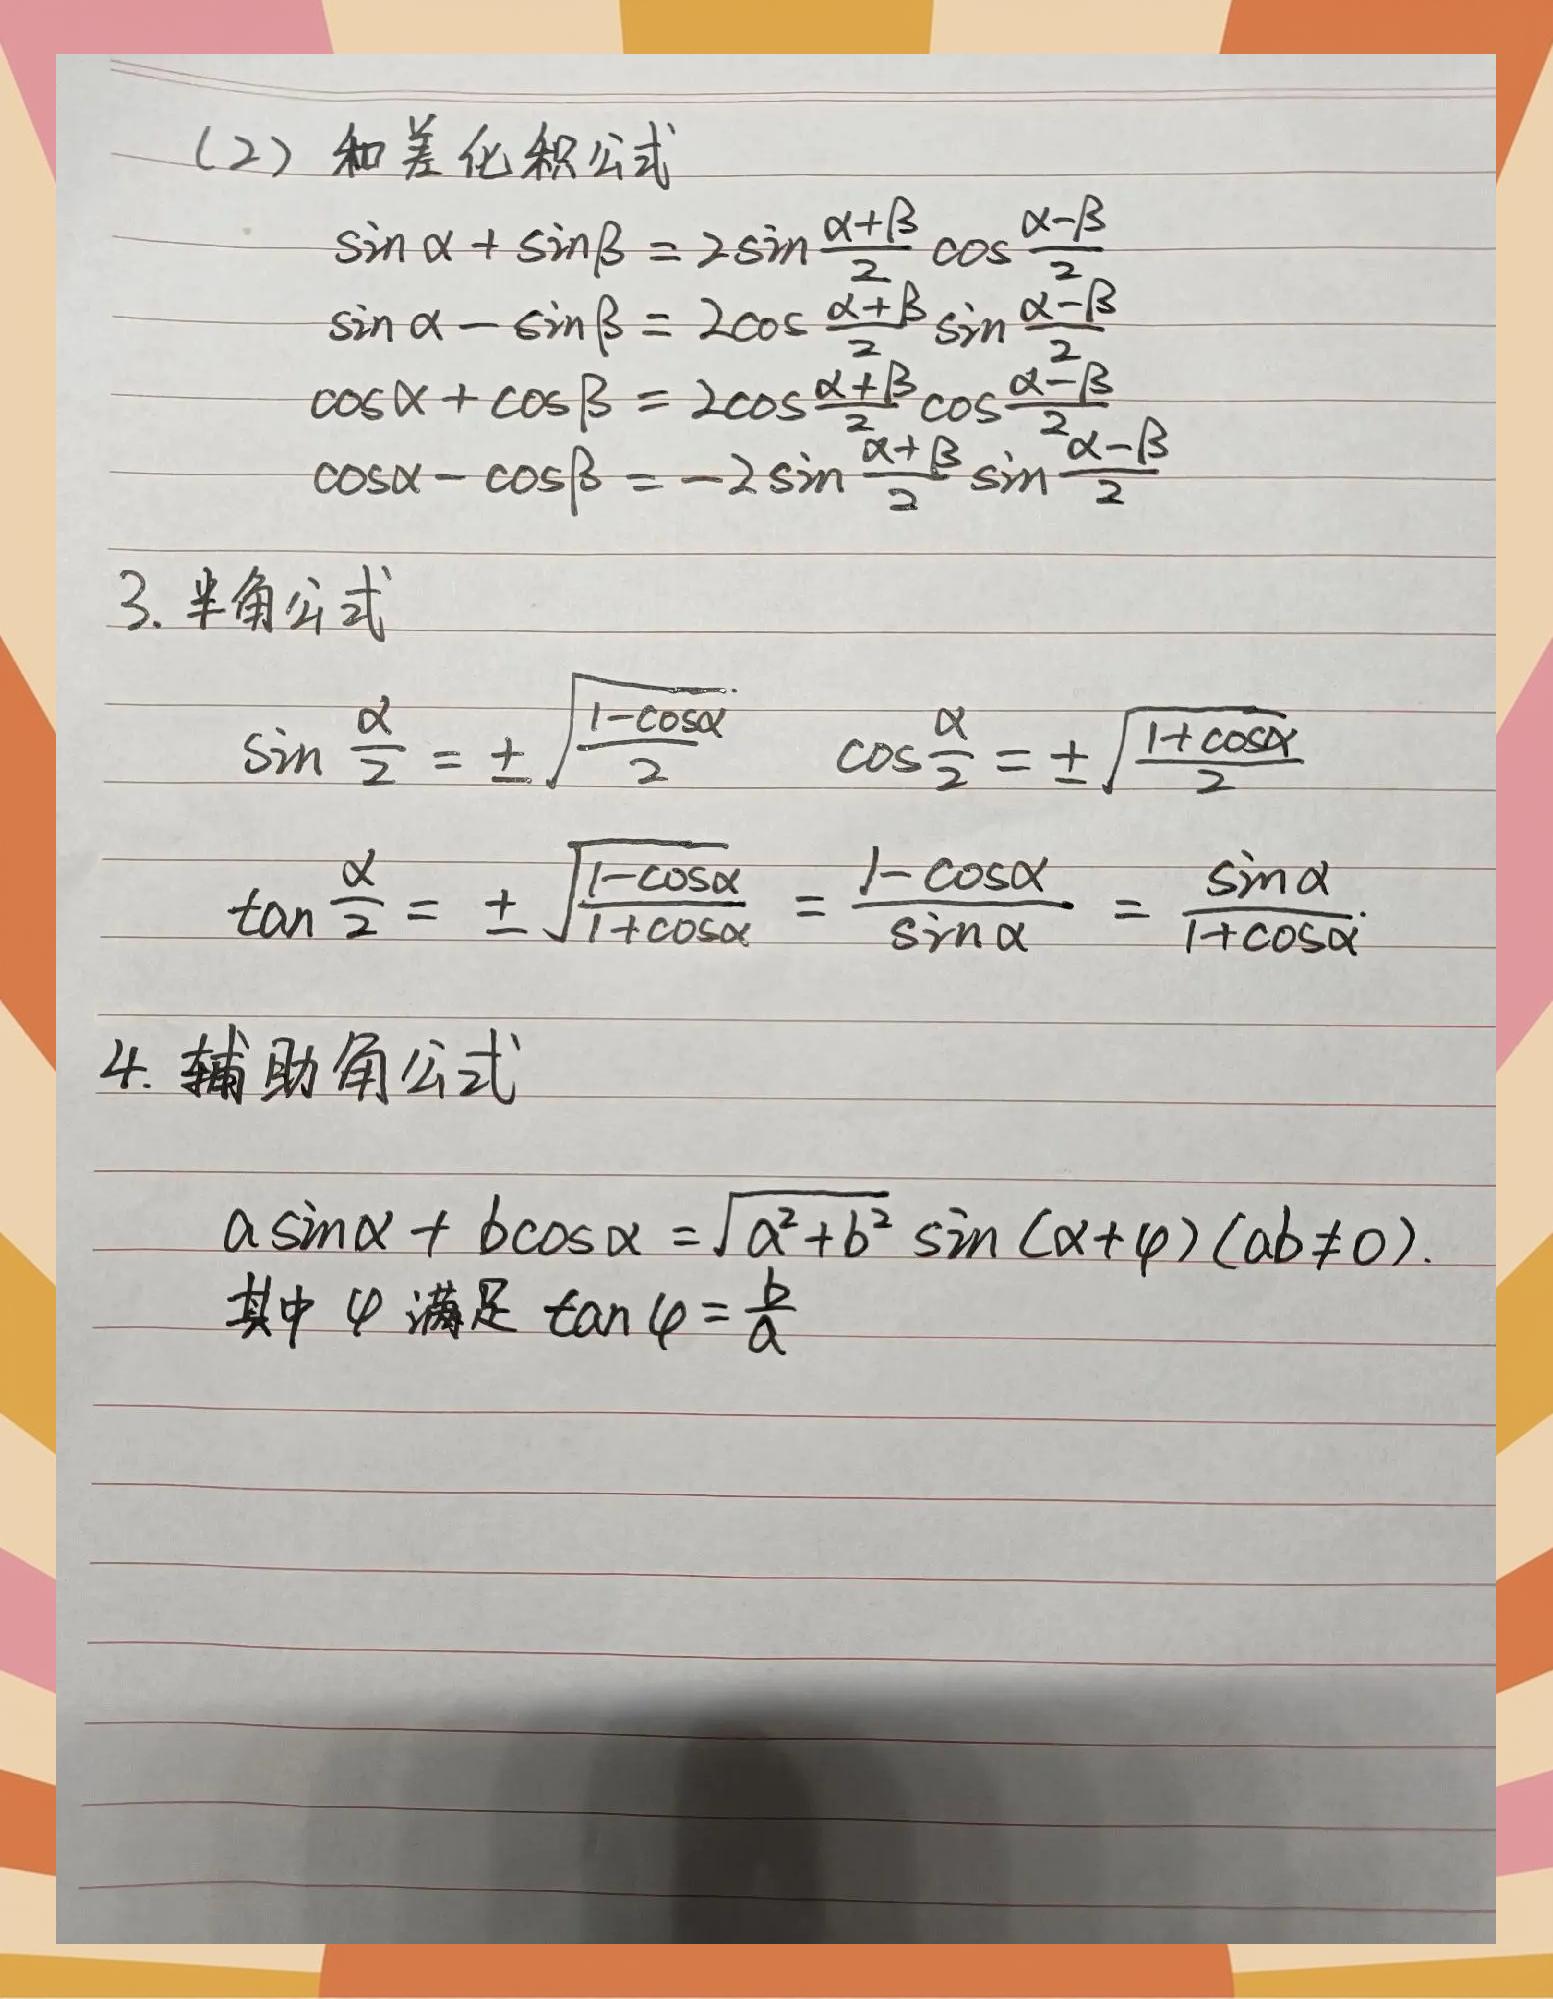 (2) 和差化积公式
sinα + sinβ = 2sin\frac{α+β}{2} cos\frac{α-β}{2}
sinα - sinβ = 2cos\frac{α+β}{2} sin\frac{α-β}{2}
cosα + cosβ = 2cos\frac{α+β}{2} cos\frac{α-β}{2}
cosα - cosβ = -2sin\frac{α+β}{2} sin\frac{α-β}{2}
3. 半角公式
sin\frac{α}{2} = ±\sqrt{\frac{1-cosα}{2}} cos\frac{α}{2} = ±\sqrt{\frac{1+cosα}{2}}
tan\frac{α}{2} = ±\sqrt{\frac{1-cosα}{1+cosα}} = \frac{1-cosα}{sinα} = \frac{sinα}{1+cosα}.
4. 辅助角公式
asinα + bcosα = \sqrt{a²+b²} sin(α+φ)(ab≠0).
其中φ满足 tanφ = \frac{b}{a}